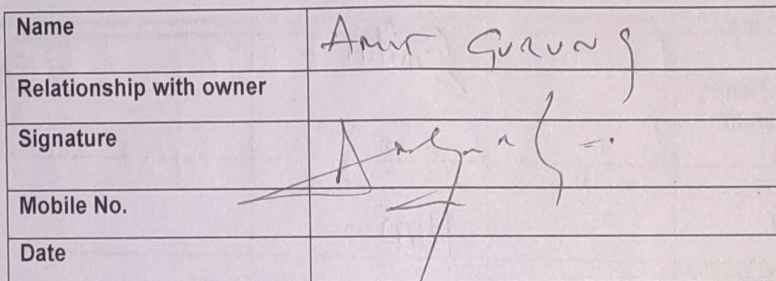 Name Amir Gurung
Relationship with owner
Signature
Mobile No.
Date